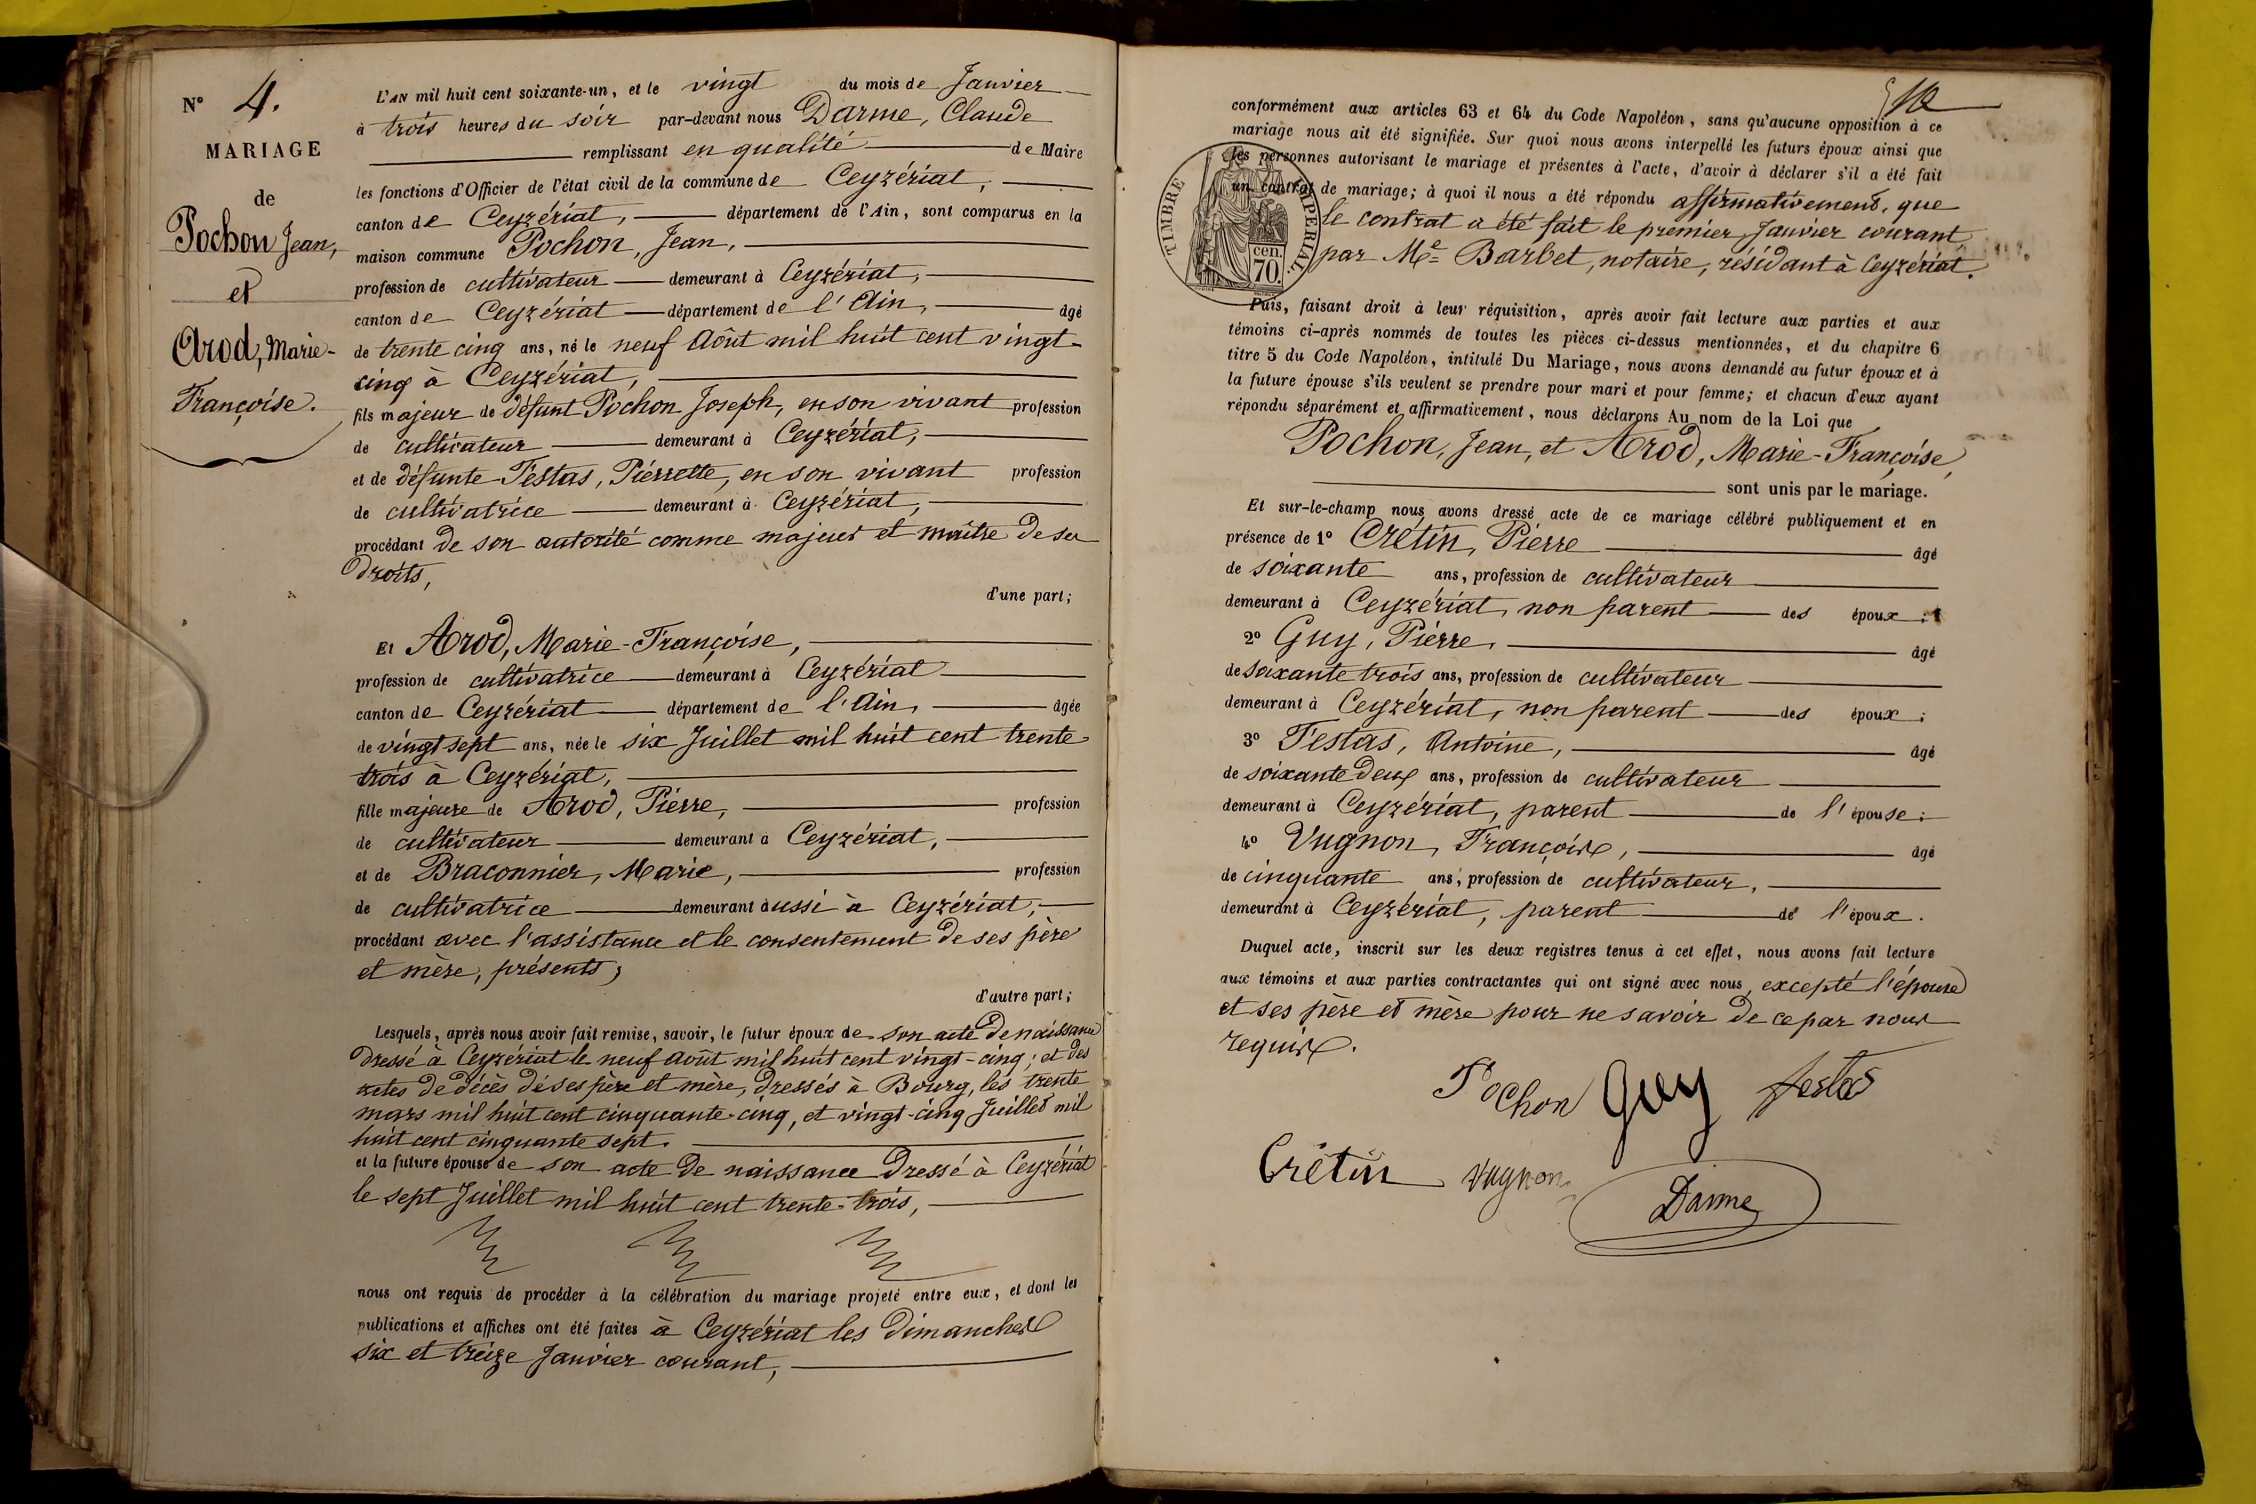 N° 4.
MARIAGE
de
Pochon Jean,
et
Arod, Marie-
Françoise.
L'AN mil huit cent soixante-un, et le vingt du mois de Janvier
à trois heures du soir par-devant nous Darme, Claude
remplissant en qualité de Maire
les fonctions d'Officier de l'état civil de la commune de Ceyzériat,
canton de Ceyzériat, département de l'Ain, sont comparus en la
maison commune Pochon, Jean,
profession de cultivateur demeurant à Ceyzériat,
canton de Ceyzériat département de l'Ain, âgé
de trente cinq ans, né le neuf Août mil huit cent vingt-
cinq à Ceyzériat,
fils majeur de défunt Pochon Joseph, en son vivant profession
de cultivateur demeurant à Ceyzériat,
et de défunte Festas, Pierrette, en son vivant profession
de cultivatrice demeurant à Ceyzériat,
procédant de son autorité comme majeur et maître de ses
droits,
d'une part;
Et Arod, Marie-Françoise,
profession de cultivatrice demeurant à Ceyzériat
canton de Ceyzériat département de l'Ain, âgée
de vingt sept ans, née le six Juillet mil huit cent trente
trois à Ceyzériat,
fille majeure de Arod, Pierre, profession
de cultivateur demeurant à Ceyzériat,
et de Braconnier, Marie, profession
de cultivatrice demeurant aussi à Ceyzériat,
procédant avec l'assistance et le consentement de ses père
et mère, présents,
d'autre part;
Lesquels, après nous avoir fait remise, savoir, le futur époux de son acte de naissance
dressé à Ceyzériat le neuf Août mil huit cent vingt-cinq; et des
actes de décès de ses père et mère, dressés à Bourg, les trente
mars mil huit cent cinquante-cinq, et vingt-cinq Juillet mil
huit cent cinquante sept.
et la future épouse de son acte de naissance dressé à Ceyzériat
le sept Juillet mil huit cent trente-trois,
nous ont requis de procéder à la célébration du mariage projeté entre eux, et dont les
publications et affiches ont été faites à Ceyzériat les dimanches
six et treize Janvier courant,
conformément aux articles 63 et 64 du Code Napoléon, sans qu'aucune opposition à ce
mariage nous ait été signifiée. Sur quoi nous avons interpellé les futurs époux ainsi que
les personnes autorisant le mariage et présentes à l'acte, d'avoir à déclarer s'il a été fait
un contrat de mariage; à quoi il nous a été répondu affirmativement, que
le contrat a été fait le premier Janvier courant
par Me Barbet, notaire, résidant à Ceyzériat.
TIMBRE IMPERIAL
cen.
70.
Puis, faisant droit à leur réquisition, après avoir fait lecture aux parties et aux
témoins ci-après nommés de toutes les pièces ci-dessus mentionnées, et du chapitre 6
titre 5 du Code Napoléon, intitulé Du Mariage, nous avons demandé au futur époux et à
la future épouse s'ils veulent se prendre pour mari et pour femme; et chacun d'eux ayant
répondu séparément et affirmativement, nous déclarons Au nom de la Loi que
Pochon, Jean, et Arod, Marie-Françoise,
sont unis par le mariage.
Et sur-le-champ nous avons dressé acte de ce mariage célébré publiquement et en
présence de 1° Crétin, Pierre âgé
de soixante ans, profession de cultivateur
demeurant à Ceyzériat, non parent des époux;
2° Guy, Pierre, âgé
de soixante trois ans, profession de cultivateur
demeurant à Ceyzériat, non parent des époux;
3° Festas, Antoine, âgé
de soixante deux ans, profession de cultivateur
demeurant à Ceyzériat, parent de l'épouse;
4° Vugnon, François, âgé
de cinquante ans, profession de cultivateur,
demeurant à Ceyzériat, parent de l'époux.
Duquel acte, inscrit sur les deux registres tenus à cet effet, nous avons fait lecture
aux témoins et aux parties contractantes qui ont signé avec nous, excepté l'épouse
et ses père et mère pour ne savoir de ce par nous
requis.
Pochon Guy festas
Crétin Vugnon
Darme